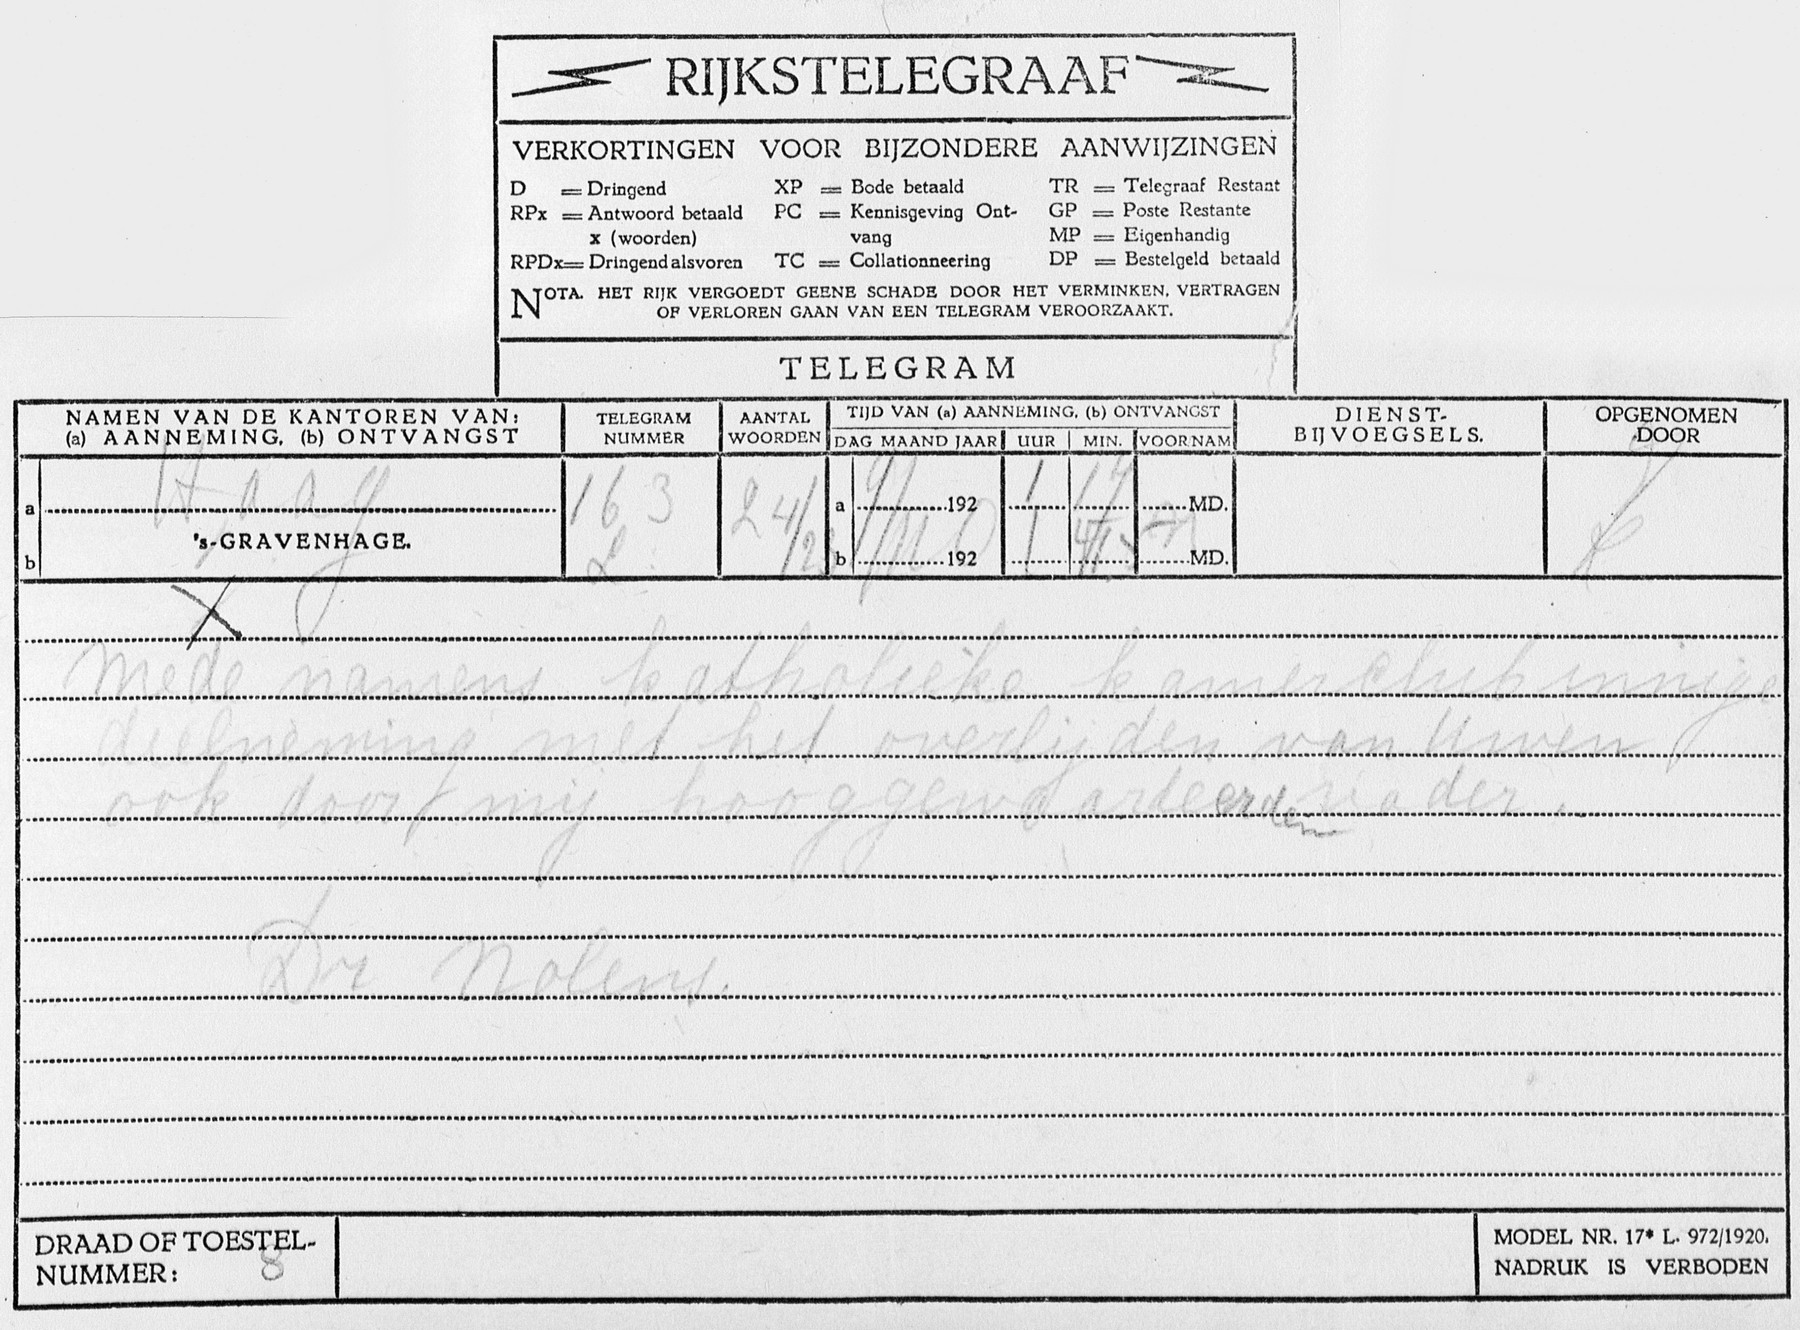 RIJKSTELEGRAAF
VERKORTINGEN VOOR BIJZONDERE AANWIJZINGEN
D = Dringend XP = Bode betaald TR = Telegraaf Restant
RPx = Antwoord betaald PC = Kennisgeving Ont- GP = Poste Restante
x (woorden) vang MP = Eigenhandig
RPDx= Dringend alsvoren TC = Collationneering DP = Bestelgeld betaald
NOTA. HET RIJK VERGOEDT GEENE SCHADE DOOR HET VERMINKEN, VERTRAGEN
OF VERLOREN GAAN VAN EEN TELEGRAM VEROORZAAKT.
TELEGRAM
NAMEN VAN DE KANTOREN VAN: TELEGRAM AANTAL TIJD VAN (a) AANNEMING, (b) ONTVANGST DIENST- OPGENOMEN
(a) AANNEMING, (b) ONTVANGST NUMMER WOORDEN DAG MAAND JAAR UUR MIN. VOORNAM BIJVOEGSELS. DOOR
a Haag 163 24/23 a 192 1 17 MD.
's-GRAVENHAGE.
b b 192 MD.
Mede namens katholieke kamerclub innige
deelneming met het overlijden van Uwen
ook door mij hooggewaardeerden vader.
Dr Nolens.
DRAAD OF TOESTEL-
NUMMER: 8
MODEL NR. 17* L. 972/1920.
NADRUK IS VERBODEN